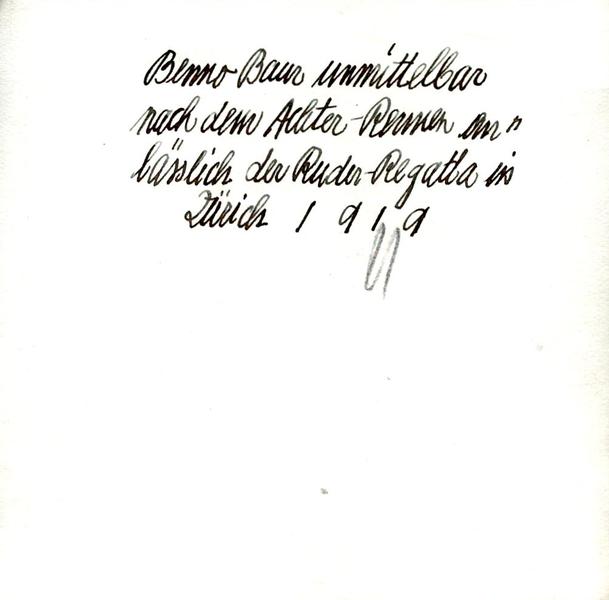 Benno Baur unmittelbar
nach dem Achter-Rennen an"
lässlich der Ruder-Regatta in
Zürich 1919